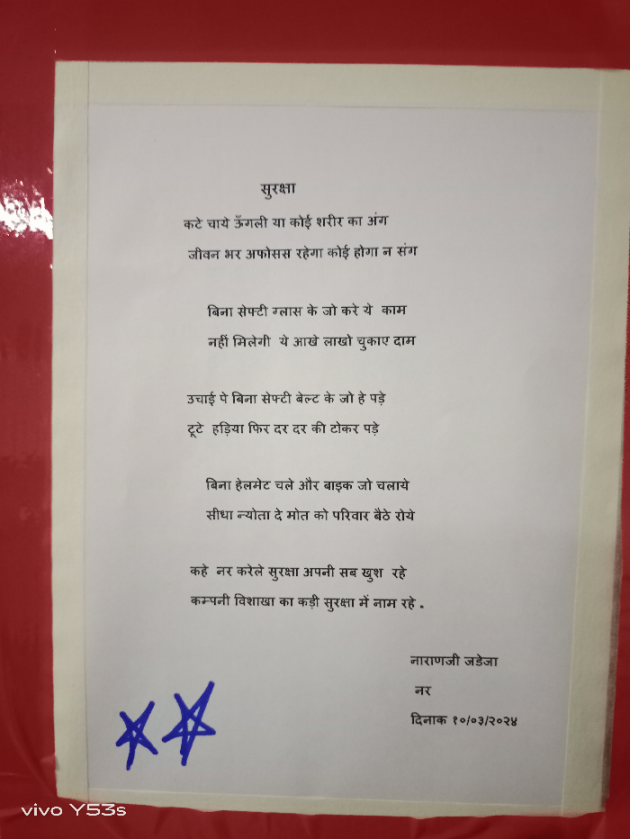 सुरक्षा
कटे चाये ऊँगली या कोई शरीर का अंग
जीवन भर अफोसस रहेगा कोई होगा न संग
बिना सेफ्टी ग्लास के जो करे ये काम
नहीं मिलेगी ये आखे लाखो चुकाए दाम
उचाई पे बिना सेफ्टी बेल्ट के जो हे पड़े
टूटे हड़िया फिर दर दर की टोकर पड़े
बिना हेलमेट चले और बाइक जो चलाये
सीधा न्योता दे मोत को परिवार बैठे रोये
कहे नर करेले सुरक्षा अपनी सब खुश रहे
कम्पनी विशाखा का कड़ी सुरक्षा में नाम रहे .
नाराणजी जडेजा
नर
दिनाक १०/०३/२०२४
vivo Y53s